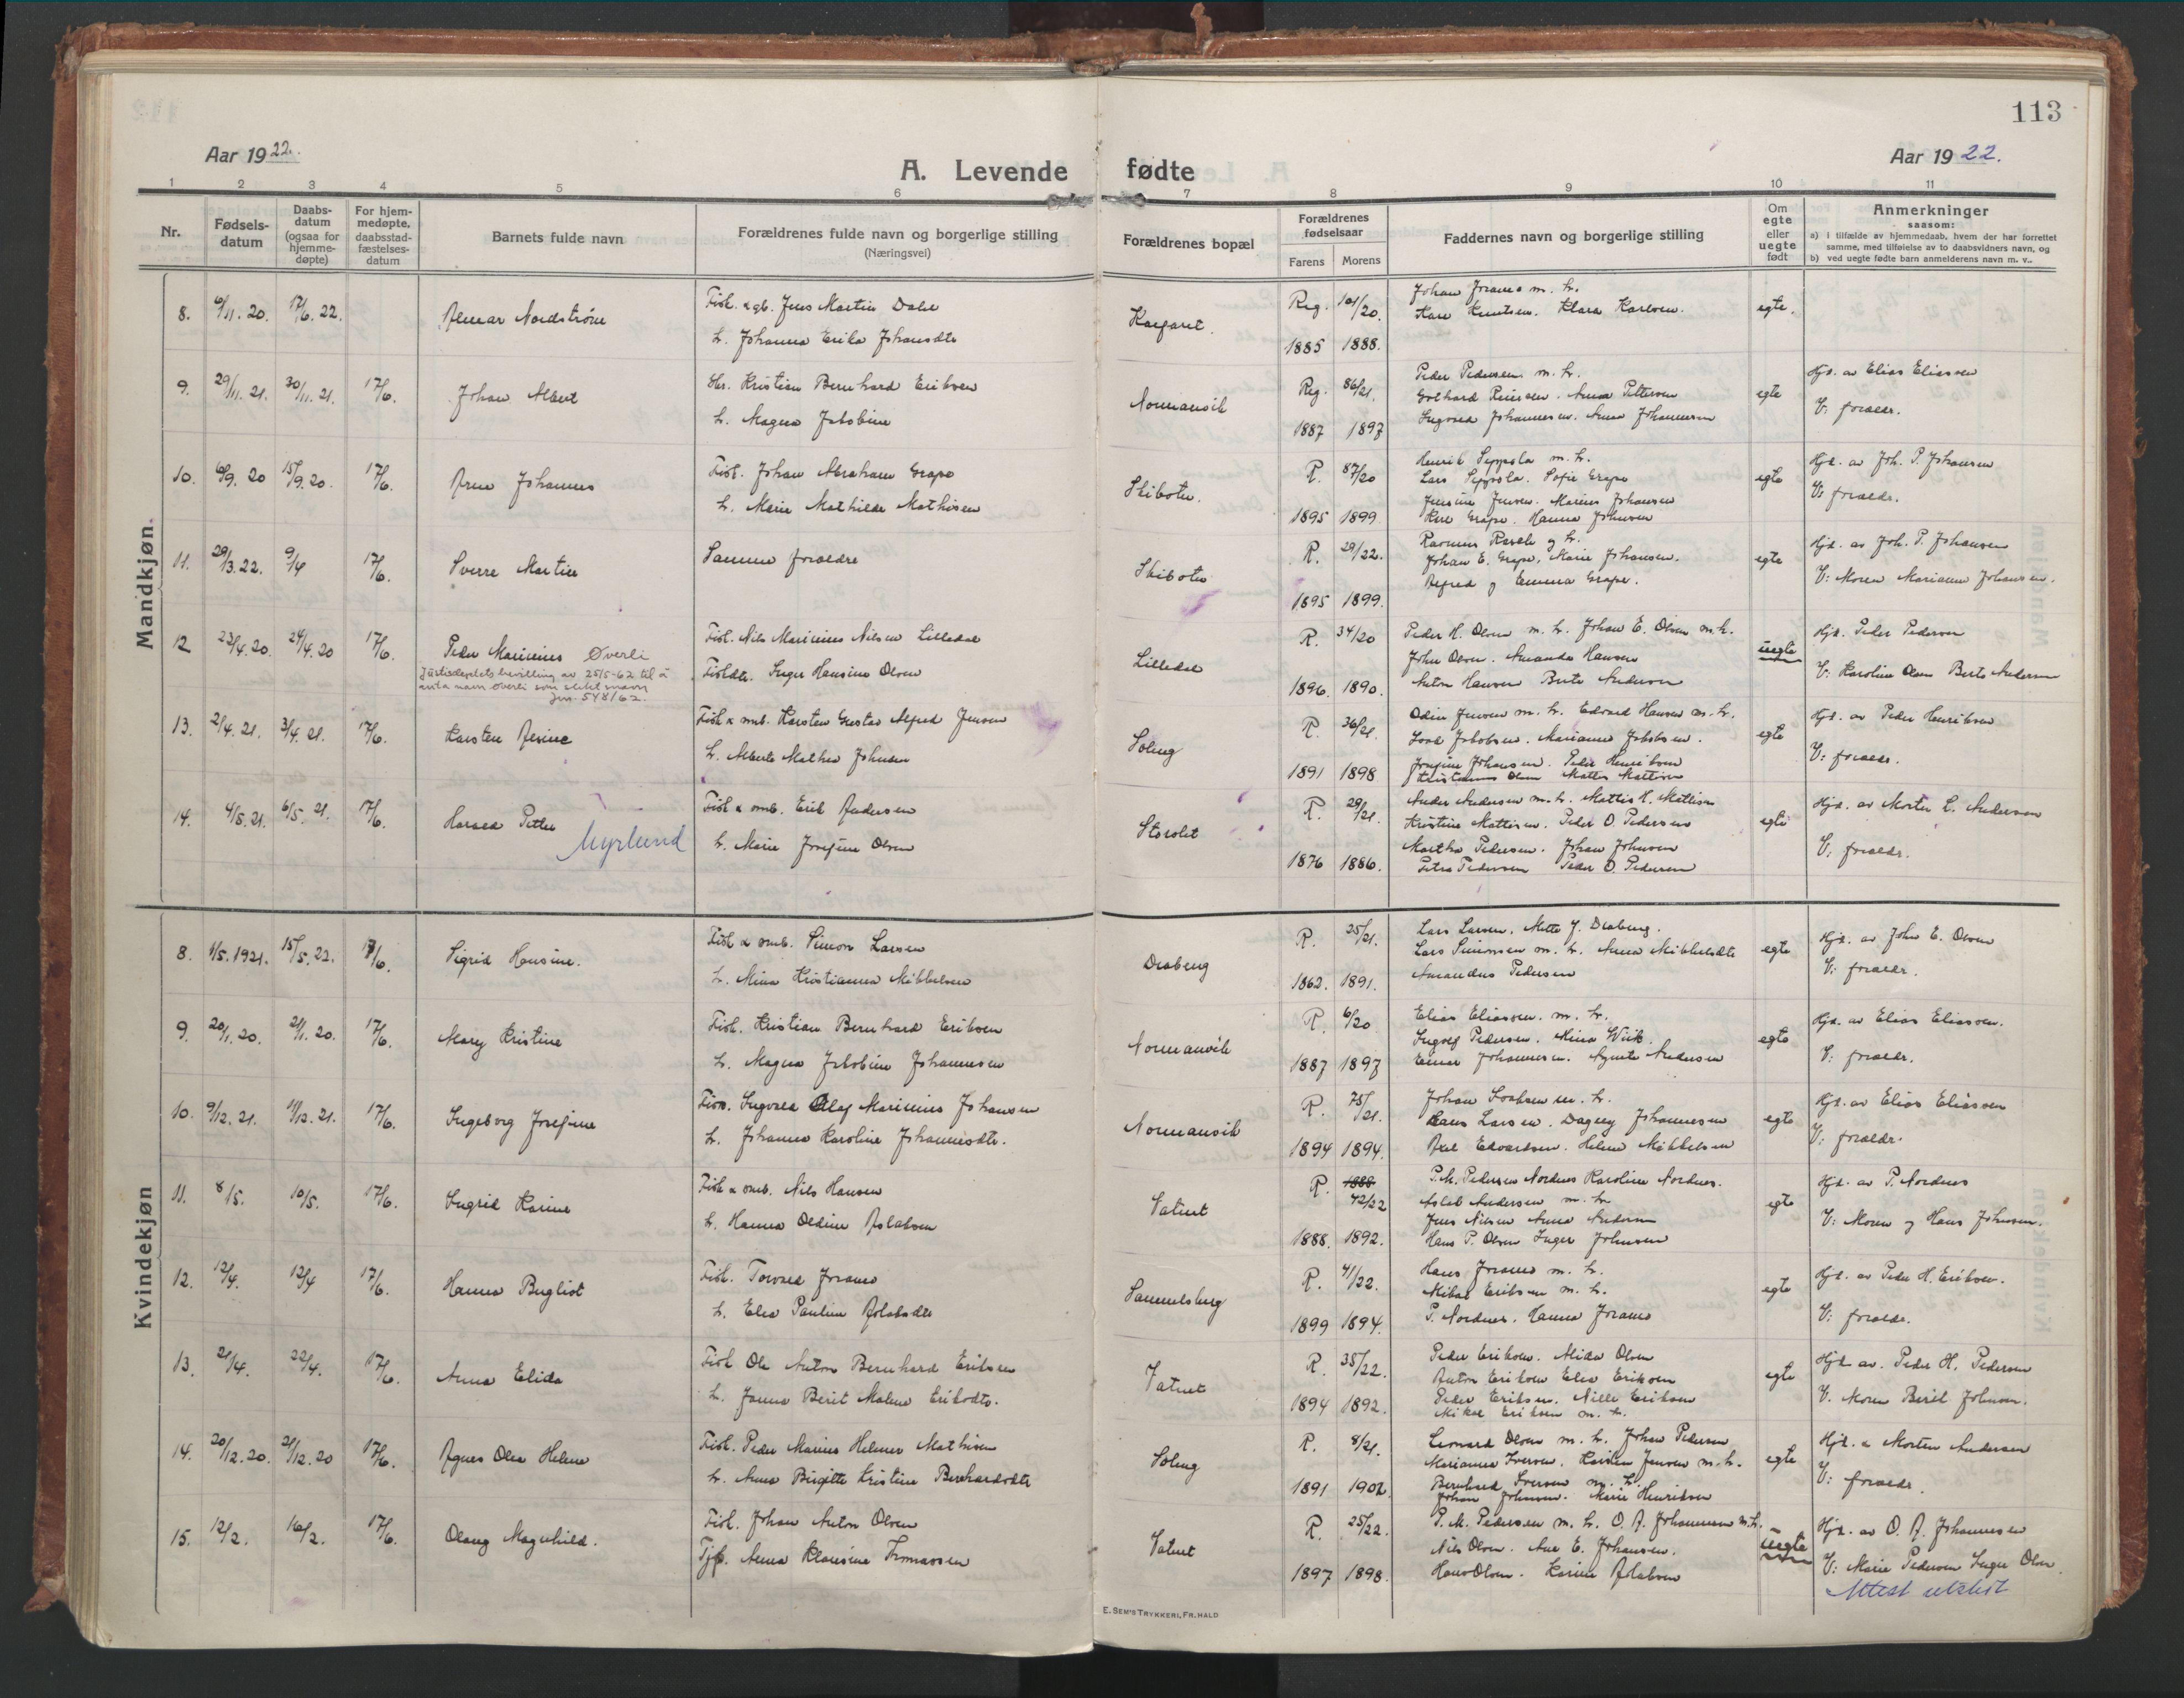 113
Aar 1922.
A. Levende fødte
Aar 1922.
1 2 3 4 5 6 7 8 9 10 11
Nr.
Fødsels-
datum
Daabs-
datum
(ogsaa for
hjemme-
døpte)
For hjem-
medøpte,
daabsstad-
fæstelses-
datum
Barnets fulde navn
Forældrenes fulde navn og borgerlige stilling
(Næringsvei)
Forældrenes bopæl
Forældrenes
fødselsaar
Farens Morens
Faddernes navn og borgerlige stilling
Om
egte
eller
uegte
født
Anmerkninger
saasom:
a) i tilfælde av hjemmedaab, hvem der har forrettet
samme, med tilføielse av to daabsvidners navn, og
b) ved uegte fødte barn anmelderens navn m. v.
Mandkjøn.
8. 6/11. 20. 17/6. 22.
Nordstrøm
Fisk. & gb. Jens Martin Dalie
h. Johanna Erika Johansdtr
Reg. 101/20.
1885 1888.
Johan Joramo m. h.
Kare Knutsen. Klara Karlsen.
egte.
9. 29/11. 21. 30/11. 21. 17/6.
Johan Albert
Kristian Bernhard Eriksen
h. Magna Jakobine
Normansvik
Reg. 86/21.
1887 1897
Peder Pedersen m. h.
Gothard Reiersen. Anna Pettersen
Ingvald Johannesen. Anna Johannesen
egte
Hjd. av Elias Eliassen
V: foræld.
10. 6/9. 20 15/9. 20. 17/6.
Arne Johannes
Fisk. Johan Abraham Grape
h. Marie Mathilde Mathisen
Skibotn.
R. 87/20
1895 1899
Henrik Seppola m. h.
Lars Seppola. Sofie Grape
Jensine Jensen. Marius Johansen
Grape. Hanna Johnsen
egte
Hjd. av Joh. P. Johansen
V: foræld.
11. 29/3. 22. 9/4 17/6.
Sverre Martin
Samme forældre
Skibotn
R. 29/22.
1895 1899.
Rasmus Rasch og h.
Johan E. Grape, Marie Johansen.
Alfred og Emma Grape.
egte
Hjd. av Joh. P. Johansen
V: Moren Marianne Johansen.
12 23/4. 20. 24/4. 20 17/6.
Peder Marinius Øverli
Justisdep.dets bevilling av 25/5-62 til å
anta navn Øverli som slektsnavn
Jnr. 548/62.
Fisk. Nils Marinius Nilsen Lilledal
Fiskdtr. Inger Hansine Olsen
Lilledal
R. 34/20
1896. 1890.
Peder H. Olsen m. h. Johan E. Olsen m. h.
John Olsen. Amanda Hansen
Anton Hansen Berte Andersen
uegte
Hjd. Peder Pedersen
V: Karoline Olsen Berte Andersen
13. 2/4. 21. 3/4. 21. 17/6.
Karsten
Fisk & smb. Karsten Gustav Alfred Jensen
h. Alberte Mathea Johnsen
Soleng
R. 36/21.
1891 1898
Odin Jensen m. h. Edvard Hansen m. h.
Isak Jakobsen. Marianne Jakobsen.
Josefine Johansen. Peder Henriksen
Kristianna Olsen Mattis Mattisen
egte
Hjd. av Peder Henriksen
V: foræld.
14. 4/5. 21. 6/5. 21. 17/6.
Harald Petter Myrlund
Fisk & smb. Erik Andersen
h. Marie Josefine Olsen
Storslet
R. 29/21.
1876 1886.
Andor Andersen m. h. Mattis H. Mattisen
Kristine Mattisen. Peder O. Pedersen
Martha Pedersen. Johan Johnsen
Petra Pedersen Peder O. Pedersen
egte
Hjd. av Morten L. Andersen
V: forældr.
Kvindekjøn
8. 1/5. 1921. 15/5. 22. 17/6.
Sigrid Hansine.
Fisk & smb. Simon Larsen
h. Mina Kristianna Mikkelsen
R. 25/21.
1862. 1891.
Lars Larsen. Mette J. Draberg.
Lars Simonsen m. h. Anna Mikkelsdtr
Amandus Pedersen
egte
Hjd. av John E. Olsen
V: forældr.
9. 20/1. 20. 21/1. 20. 17/6.
Mary Kristine
Fisk. Kristian Bernhard Eriksen
h. Magna Jakobine Johannesen
Normansvik
R. 6/20
1887 1897
Elias Eliassen. m. h.
Ingolf Pedersen. Mina Wiik.
Einar Johannesen. Agnete Andersen
egte
Hjd. av Elias Eliassen.
V: forældr.
10. 9/12. 21. 11/12. 21. 17/6.
Ingeborg Josefine
Fisk. Ingvald Olaf Marinius Johansen
h. Johanna Karoline Johannesdtr.
Normansvik
R. 75/21.
1894 1894.
Johan Isaksen m. h.
Hans Larsen. Dagny Johannesen
Axel Edvardsen. Helene Mikkelsen
egte
Hjd. av Elias Eliassen
V: forældr.
11. 8/5. 10/5. 17/6.
Ingrid Karine
Fisk & smb. Nils Hansen
h. Hanna Oldine Aslaksen
Vatnet
R. 1888
42/22
1888. 1892.
P. M. Pedersen Nordnes Karoline Nordnes.
Aslak Andersen m. h.
Jens Nilsen Anna Andersen
Hans P. Olsen Inger Johnsen
egte
Hjd. av P. Nordnes
V: Moren og Hans Johnsen.
12. 12/4. 12/4 17/6.
Hanna Bergliot
Fisk. Torvald Joramo
h. Elea Pauline Aslaksdtr
Samuelsberg
R. 41/22.
1899 1894.
Hans Joramo m. h.
Mikal Eriksen m. h.
P. Nordnes. Hanna Joramo
egte
Hjd. av Peder H. Eriksen.
V: forældr.
13. 21/4. 22/4. 17/6.
Anna Elida
Fisk Ole Anton Bernhard Eriksen
h. Janna Berit Malene Eriksdtr.
Vatnet
R. 35/22.
1894 1892.
Peder Eriksen. Alida Olsen
Anton Eriksen Elea Eriksen
Peder Eriksen. Nille Eriksen
Mikal Eriksen m. h.
egte
Hjd. av. Peder H. Pedersen
V. Moren Berit Johnsen.
14. 20/12. 20. 21/12. 20 17/6.
Agnes Olea Helene
Fisk. Peder Marius Helmer Mathisen
h. Anna Birgitte Kristine Bernhardsdtr
Soleng
R. 8/21.
1891 1902.
Leonard Olsen m. h. Johan Pedersen
Marianna Iversen. Karsten Jensen m. h.
Bernhard Iversen m. h.
Johan Johnsen. Marie Henriksen
egte
Hjd. a Morten Andersen
V: forældr.
15. 12/2. 16/2. 17/6.
Olaug Magnhild.
Fisk. Johan Anton Olsen
Tjp. Anna Klausine Tomassen
Vatnet
R. 25/22.
1897 1898.
P. M. Pedersen m. h. O. A. Johannesen m. h.
Nils Olsen. Ane E. Johansen.
Hans Olsen. Karine Aslaksen
uegte
Hjd. av O. A. Johannesen
V: Marie Pedersen Inger Olsen
Attest utskrevet
E. SEM'S TRYKKERI, FR.HALD